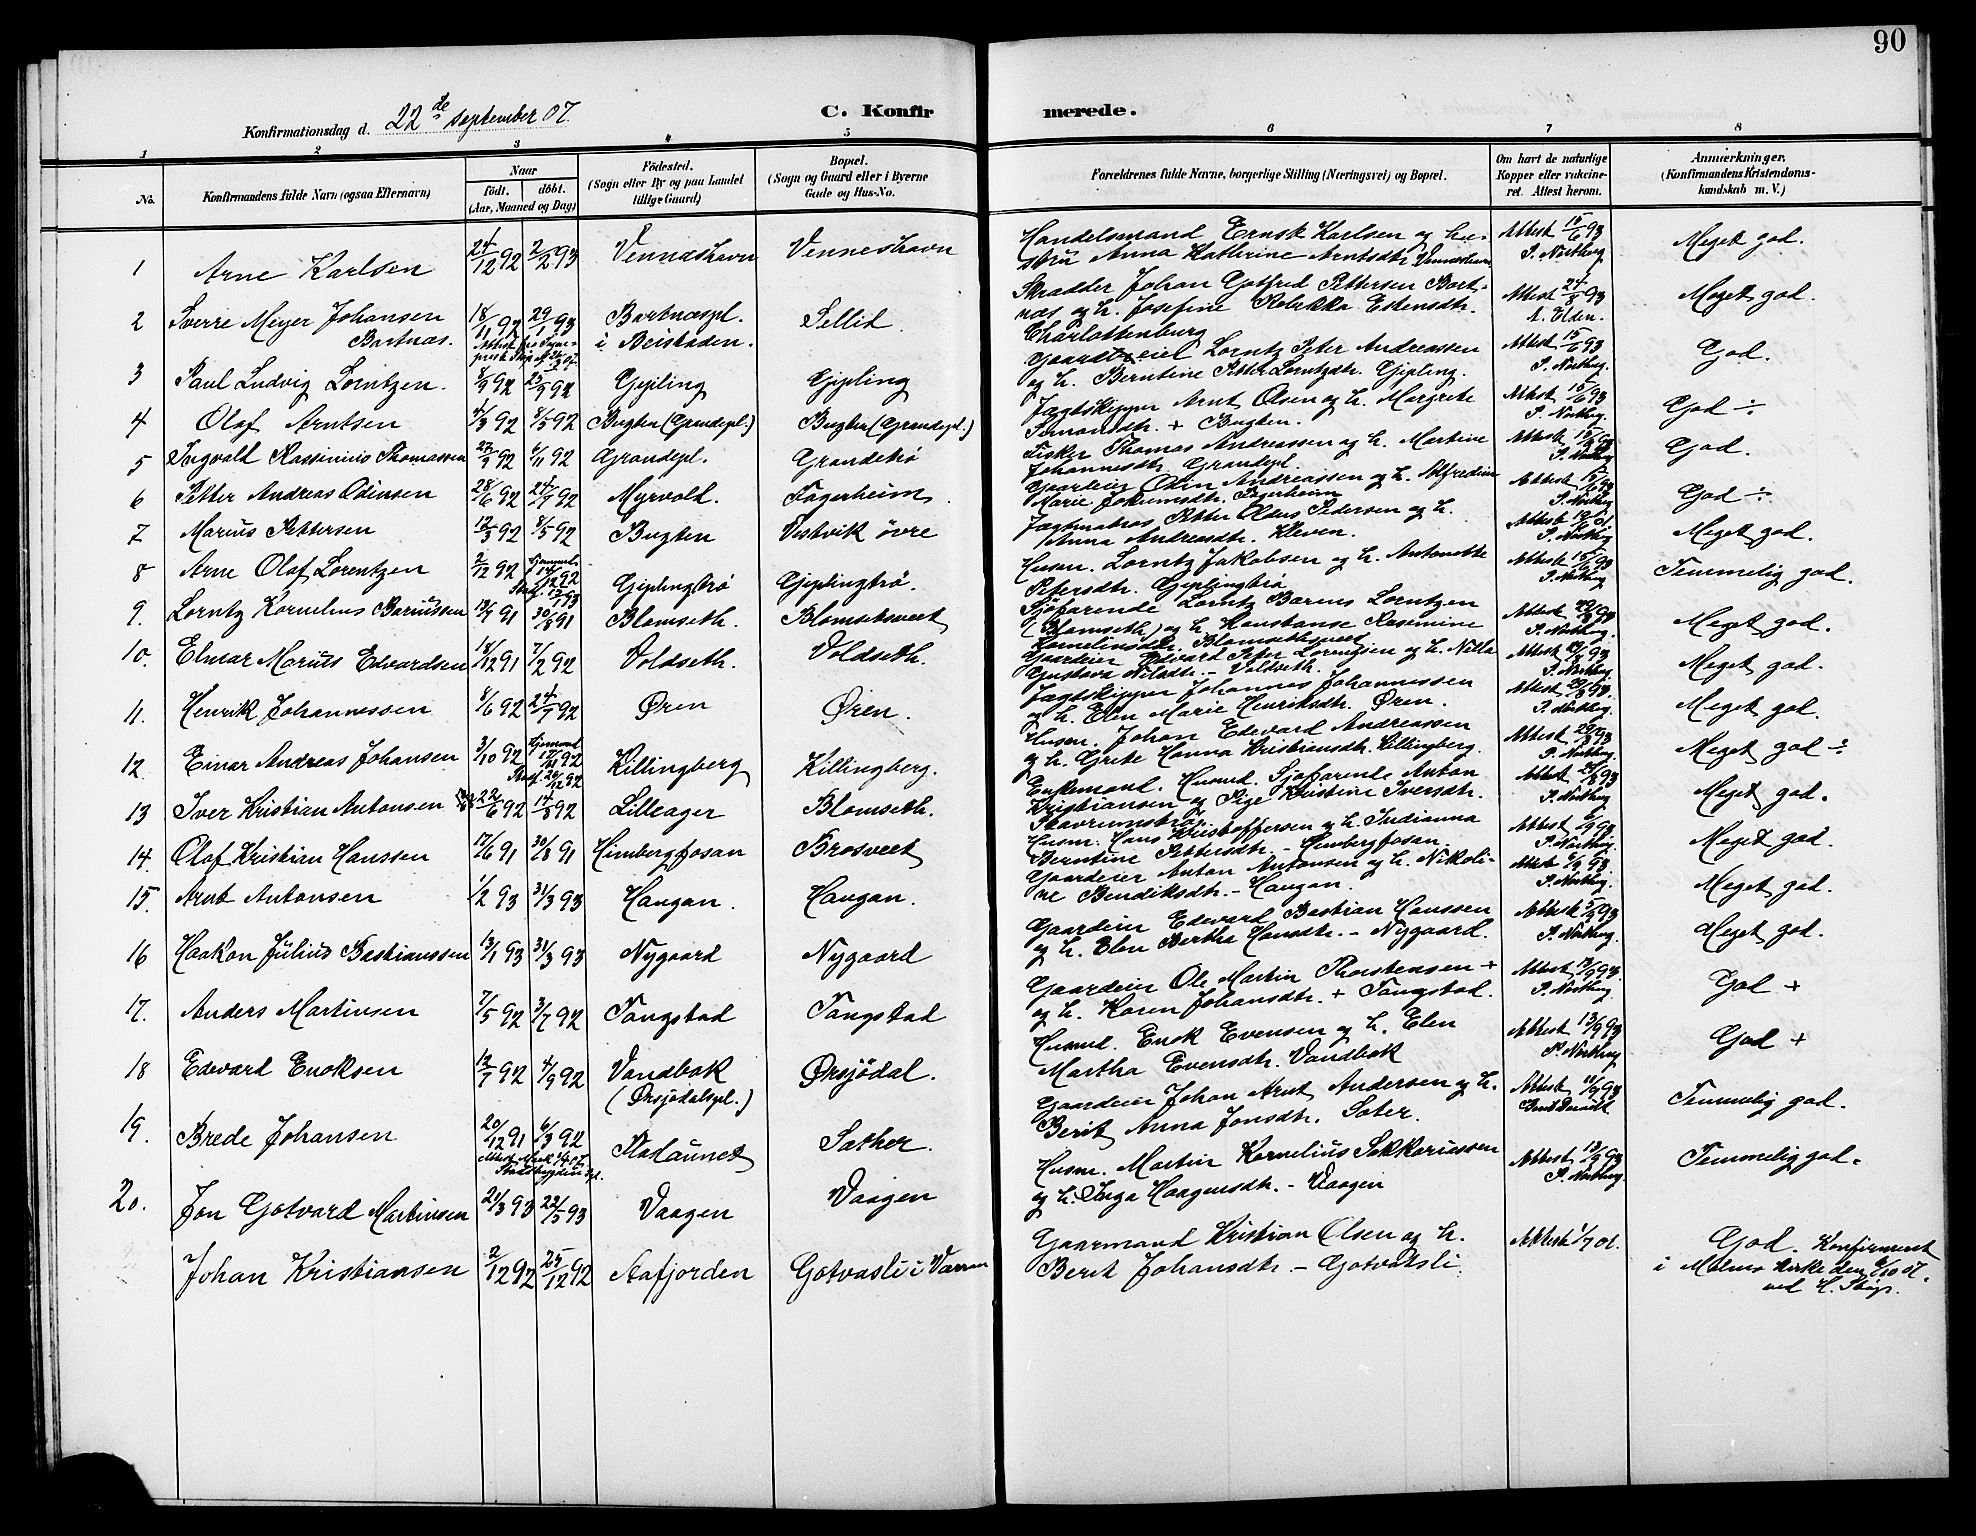 90
Konfirmationsdag d. 22de september 07.
C. Konfirmerede.
1 2 3 4 5 6 7 8
No.
Konfirmandens fulde Navn (ogsaa Efternavn)
Naar
födt. döbt.
(Aar, Maaned og Dag)
Födested.
(Sogn eller By og paa Landet
tillige Gaard)
Bopæl.
(Sogn og Gaard eller i Byerne
Gade og Hus-No.
Forældrenes fulde Navne, borgerlige Stilling (Næringsvei) og Bopæl.
Om havt de naturlige
Kopper eller vaccine-
ret. Attest herom.
Anmærkninger.
(Konfirmandens Kristendoms-
kundskab m. V.)
1 Arne Karlsen 24/12 92 2/2 93 Venneshavn Venneshavn
Handelsmand Ernst Karlsen og hu-
stru Anna Kathrine Arntsdtr. Venneshavn
Attest 15/6 93
P. Northug
Meget god.
2 Sverre Meyer Johansen
Bartnas. 18/11 92 29/1 93 Bartnaspl.
i Beistaden. Sellid.
Skradder Johan Gotfred Pettersen Bart-
nas og h. Josefine Rebekka Estensdtr.
Charlottenburg
Attest 24/8 93
A. Elden.
Meget god.
3 Paul Ludvig Lorntzen. 8/9 92 25/9 92 Gipling Gipling
Gaardeier Lorntz Peter Andreassen
og h. Berntine Petter Lorntzdtr. Gipling.
Attest 15/6 93
P. Northug.
God.
4 Olaf Arntsen 4/3 92 8/5 92 Bugten (Grandepl.) Bugten (Grandepl.)
Jagtskipper Arnt Olsen og h. Margrete
Simonsdtr. + Bugten.
Attest 15/6 93
P. Northug.
God ÷
5 Ingvald Rasinius Thomassen 27/9 92 6/11 92 Grandepl. Grandetrö
Fisker Thomas Andreassen og h. Martine
Johannesdtr. Grandepl.
P. Northug
God.
6 Petter Andreas Odinsen 28/6 92 24/7 92 Myrvold. Fagerheim
Gaardeier Odin Andreassen og h. Alfredine
Marie Jokumsdtr. Fagerheim
P. Northug
God ÷
7 Marius Pettersen 12/3 92 8/5 92 Bugten Vestvik övre
Jagtmatros Petter Olaus Pedersen og h.
Anna Andreasdtr. Kleven.
P. Northug
Meget god.
8 Arne Olaf Lorentzen 2/12 92 Giplingtrö Giplingtrö.
Husm. Lorntz Jakobsen og h. Antonette
Petersdtr. Giplingtrö
Attest 15/6 93
P. Northug
Temmelig god.
9. Lorntz Kornelius Bariussen 13/7 91 30/8 91 Blomseth. Blomsetsveet
Sjöfarende Lorntz Barius Lorntzen
(Blomseth) og h. Konstanse Rasmine
Kornelinsdtr. Blomsetsveet
P. Northug.
Meget god.
10. Elmar Marius Edvardsen 18/12 91 7/2 92 Voldseth. Voldseth.
Gaardeier Edvard Peter Lorentzen og h. Nilla
Gustava Nilsdtr. - Voldseth.
P. Northug.
Meget god.
11. Henrik Johannessen 8/6 92 24/7 92 Øren Øren.
Jagtskipper Johannes Johannessen
og h. Elen Marie Henriksdtr. Øren.
P. Northug.
Meget god.
12. Einar Andreas Johansen 3/10 92 Killingberg Killingberg.
Husm. Johan Edevard Andreassen
og h. Grete Hanna Kristiansdtr. Killingberg.
P. Northug.
Meget god ÷
13 Iver Kristian Antonsen 22/6 92 14/8 92 Lilleager Blomseth.
Enkemand. Husmd. Sjöfarende Anton
Kristiansen og Pige Kristine Iversdtr.
P. Northug
Meget god.
14. Olaf Kristian Hanssen 17/6 91 30/8 91 Himbergfosan Brosveet
Husm. Hans Kristoffersen og h. Indianna
Berntine Pettersdtr. - Himbergfosan.
P. Northug.
Meget god.
15. Arnt Antonsen 1/2 93 31/3 93 Haugan. Haugan.
Gaardeier Anton Antonsen og h. Nikoli-
ne Bendiksdtr. - Haugan.
P. Northug.
Meget god.
16 Haakon Julius Bastianssen 13/1 93 31/3 93 Nygaard Nygaard
Gaardeier Edevard Bastian Hanssen
og h. Elen Bertha Hansdtr. - Nygaard.
P. Northug.
Meget god.
17. Anders Martinsen 7/5 92 3/7 92 Tangstad Tangstad
Gaardeier Ole Martin Thorstensen +
og h. Karen Johansdtr. + Tangstad.
P. Northug.
God +
18 Edevard Enoksen 12/7 92 4/9 92 Vandbak
(Ørsjödalspl.) Ørsjödal.
Husmd. Enok Evensen og h. Elen
Martha Evensdtr. Vandbak
Attest 13/9 93
P. Northug
God +
19. Brede Johansen 20/12 91 6/3 92 Stadaunet Sather
Gaardeier Johan Arnt Andersen og h.
Berit Anna Jonsdtr. Sater.
Temmelig god.
20. Jon Gotvard Martinsen 21/3 93 22/5 93 Vaagen Vaagen
Husm. Martin Kornelius Sakkariassen
og h. Inga Haagensdtr. - Vaagen
Attest 13/9 93
P. Northug.
Temmelig god.
Johan Kristiansen 2/12 92 25/12 92 Aafjorden Gotvasli i Varran
Gaarmand Kristian Olsen og h.
Berit Johansdtr. - Gotvatsli.
Attest 1/7 01.
God. Konfirmert
i Malmo kirke den 6/10 07.